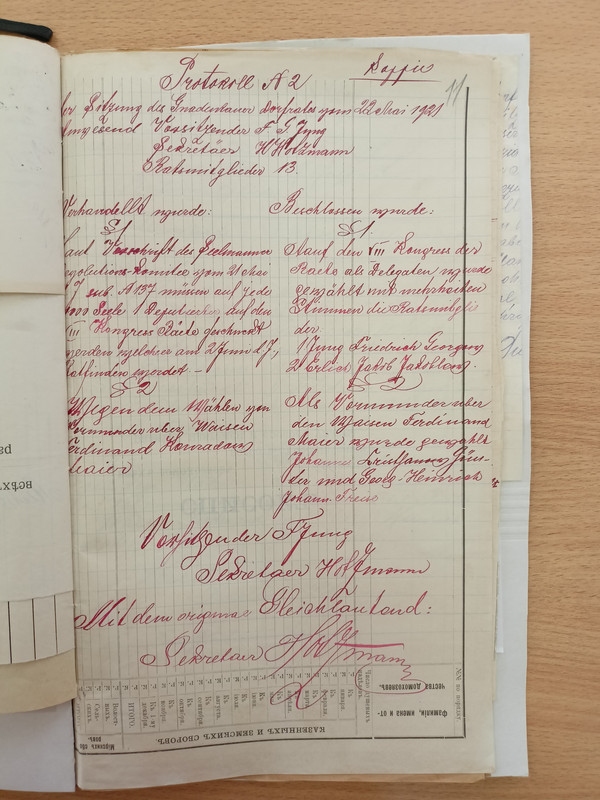 Koppie
11
Protokoll N 2
der Sitzung des Gnadentauer Dorfrates vom 22 Mai 1921
Anwesend Vorsitzender F. G. Jung
Sekretäer H Hoffmann
Ratsmitglieder 13.
Verhandellt wurde:
§ 1
Laut Vorschrift des Seelmanner
Revolections-Komitee vom 21 Mai
d J sub. N 137 müssen auf jede
1000 Seele 1 Deputierter auf den
VIII Kongress Räte geschickt
werden welcher am 2 Juni d J,
statfinden werdet. —
§ 2
Wegen dem Wählen von
Vormunder über Waisen
Ferdinand Konradow
Maier
Beschlossen wurde:
§ 1
Auf den VIII Kongress der
Räte als Delegaten wurde
gewählt mit mehrheiten
Stimmen die Ratsmitglie
der.
1 Jung Friedrich Georgow
2 Jakob Jakoblow.
§ 2
Als Vormunder über
den Waisen Ferdinand
Maier wurde gewählt
Johannes
und Georg-Heinrich
Johann.
Vorsitzender F Jung
Sekretaer Hoffmann
Mit dem original Gleichlautend:
Sekretaer Hoffmann
КАЗЕННЫХЪ И ЗЕМСКИХЪ СБОРОВЪ.
Фамилія, имена и от-
чество домохозяевъ.
№№ по порядку.
января.
февраля.
марта.
апрѣля.
мая.
іюня.
іюля.
августа.
сентября.
октября.
ноября.
декабря.
ИТОГО.
всѣхъ